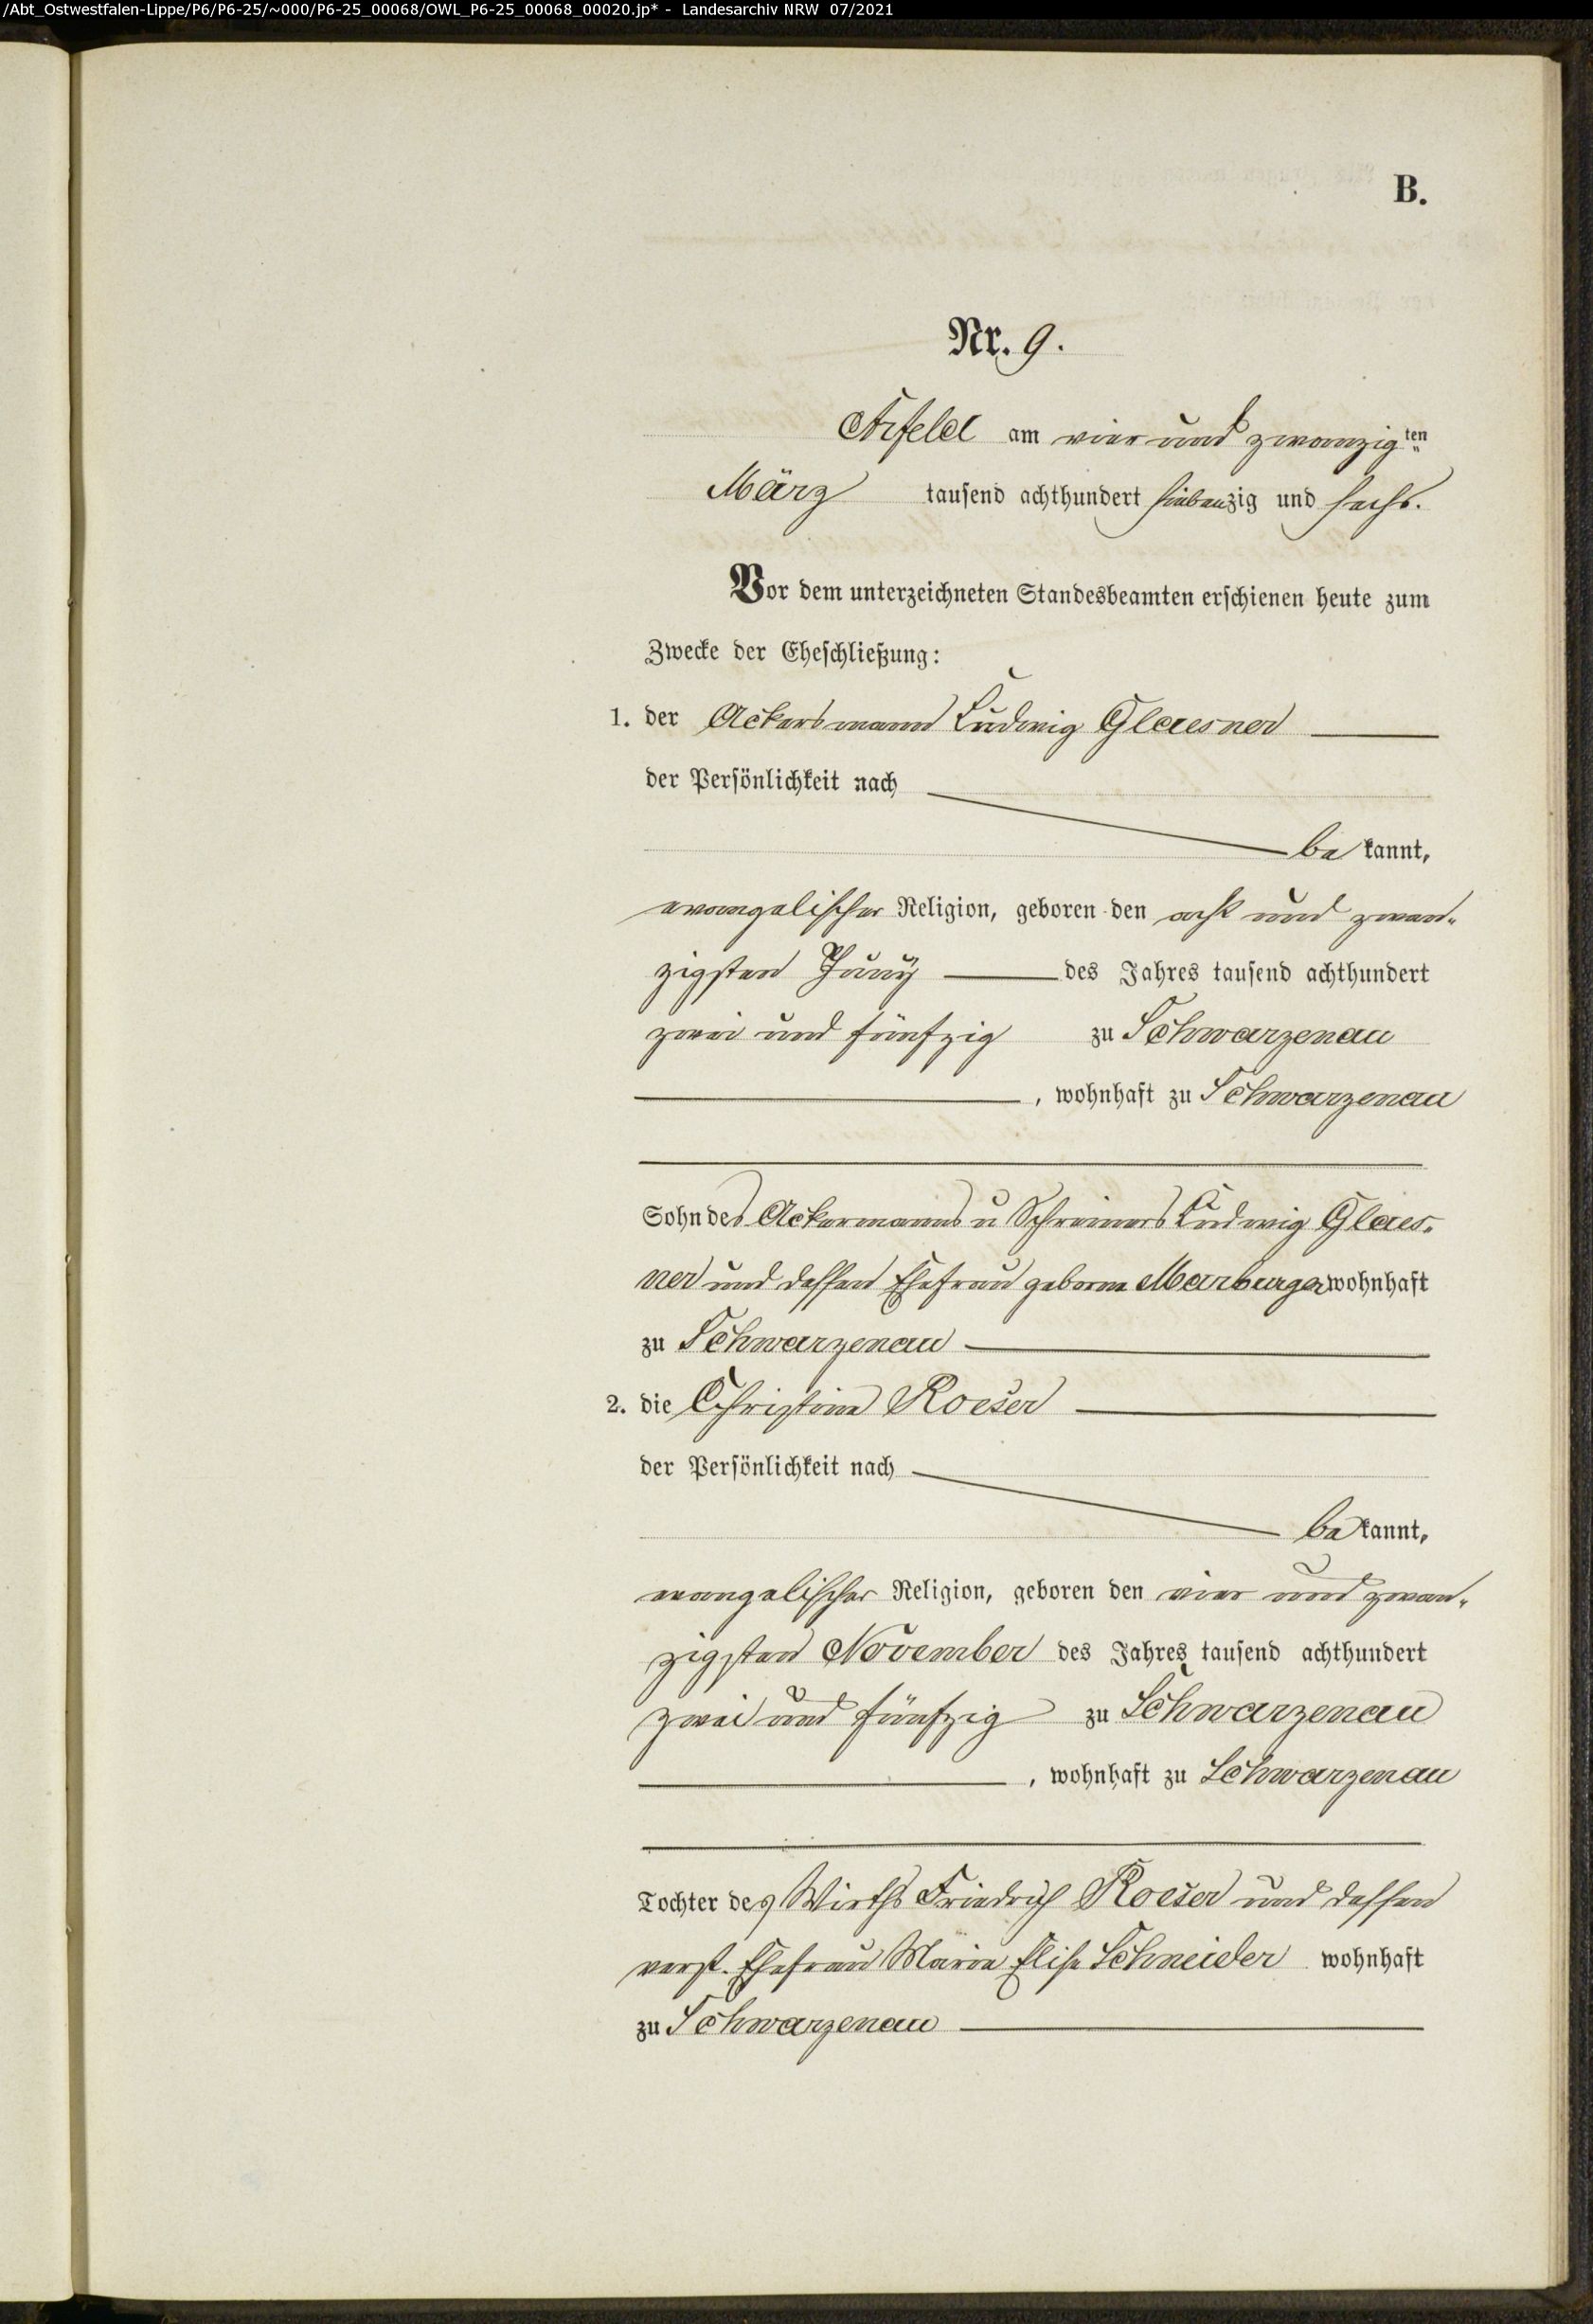 /Abt_Ostwestfalen-Lippe/P6/P6-25/~000/P6-25_00068/OWL_P6-25_00068_00020.jp* - Landesarchiv NRW 07/2021
B.
Nr. 9.
Arfeld am vier und zwanzigten
März tausend achthundert siebenzig und sechs.
Vor dem unterzeichneten Standesbeamten erschienen heute zum
Zwecke der Eheschließung:
1. der Ackersmann Ludwig Glaesner
der Persönlichkeit nach
bekannt,
evangelischer Religion, geboren den acht und zwan-
zigsten Juny des Jahres tausend achthundert
zwei und fünfzig zu Schwarzenau
, wohnhaft zu Schwarzenau
Sohn des Ackermanns u Schreiners Ludwig Glaes-
ner und dessen Ehefrau geborne Marburger wohnhaft
zu Schwarzenau
2. die Christine Roeser
der Persönlichkeit nach
bekannt,
evangelischer Religion, geboren den vier und zwan-
zigsten November des Jahres tausend achthundert
zwei und fünfzig zu Schwarzenau
, wohnhaft zu Schwarzenau
Tochter des Wirths Friedrich Roeser und dessen
verst. Ehefrau Marie Elise Schneider wohnhaft
zu Schwarzenau